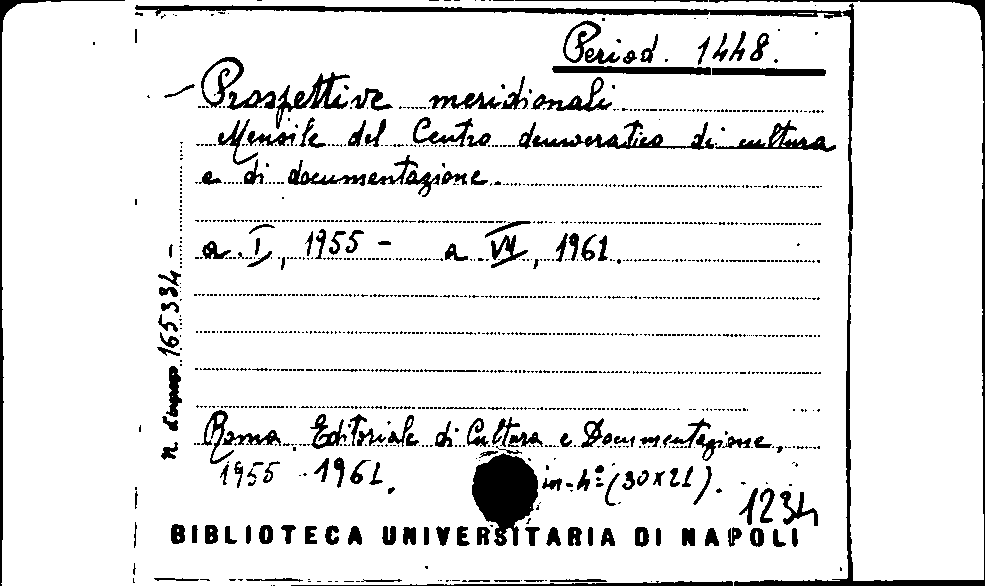 Period. 1448.
Prospettive meridionali.
Mensile del Centro democratico di cultura
e di documentazione.
a. I, 1955 - a. VII, 1961.
n. d'ingresso 165334 -
Roma. Editoriale di Cultura e Documentazione,
1955 - 1961.
in-4º (30x21).
1234
BIBLIOTECA UNIVERSITARIA DI NAPOLI